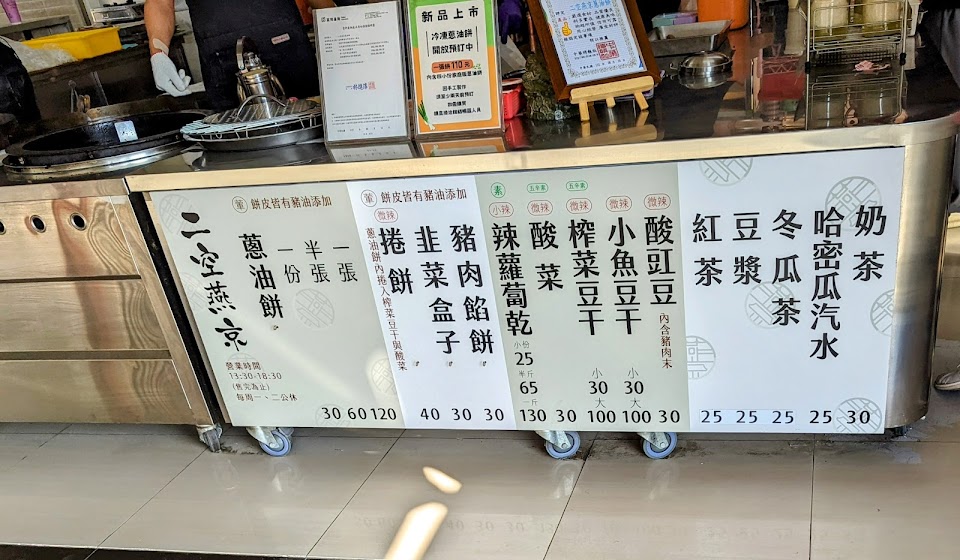 新品上市
冷凍蔥油餅
開放預訂中
一張餅110元
二空燕京
營業時間
13:30-18:30
(售完為止)
每周一、二公休
葷 餅皮皆有豬油添加
蔥油餅
一份
半張
一張
30 60 120
葷 餅皮皆有豬油添加
微辣
捲餅
蔥油餅內捲入榨菜豆干與酸菜
韭菜盒子
豬肉餡餅
40 30 30
素
小辣
辣蘿蔔乾
小份
25
半斤
65
一斤
130
五辛素
微辣
酸菜
30
五辛素
微辣
榨菜豆干
小
30
大
100
微辣
小魚豆干
小
30
大
100
微辣
酸豇豆
內含豬肉末
30
紅茶
25
豆漿
25
冬瓜茶
25
哈密瓜汽水
25
奶茶
30